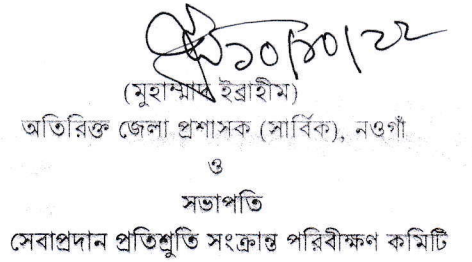 ১০/১০/২২
(মুহাম্মাদ ইব্রাহীম)
অতিরিক্ত জেলা প্রশাসক (সার্বিক), নওগাঁ
ও
সভাপতি
সেবাপ্রদান প্রতিশ্রুতি সংক্রান্ত পরিবীক্ষণ কমিটি